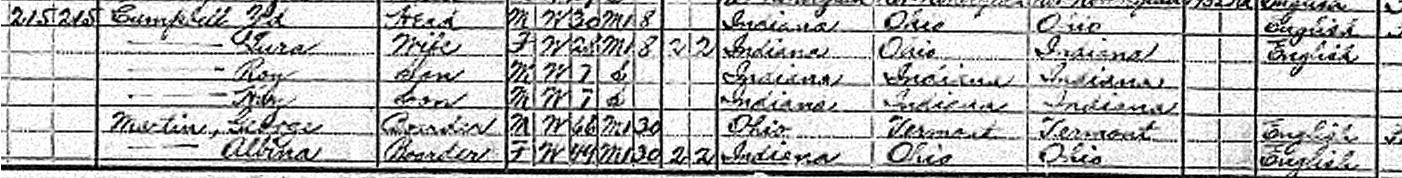 215 215 Campbell Ed Head M W 30 M1 8 Indiana Ohio Ohio English
— Wife F W M1 8 2 2 Indiana Ohio Indiana English
— Roy Son M W 7 S Indiana Indiana Indiana
— Son M W 7 S Indiana Indiana Indiana
Martin, George Boarder M W 66 M1 30 Ohio Vermont Vermont English
— Albina Boarder F W 49 M1 30 2 2 Indiana Ohio Ohio English